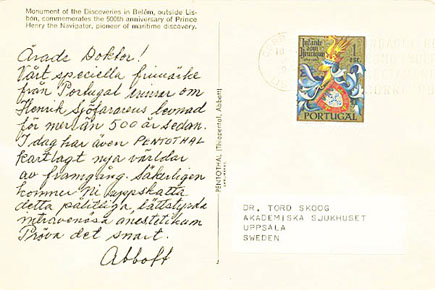 Monument of the Discoveries in Belém, outside Lis-
bon, commemorates the 500th anniversary of Prince
Henry the Navigator, pioneer of maritime discovery.
Ärade Doktor!
Vårt speciella frimärke
från Portugal minner om
Henrik Sjöfararens levnad
för mer än 500 år sedan.
I dag har även PENTOTHAL
kartlagt nya världar
av framgång. Säkerligen
kommer Ni uppskatta
detta pålitliga, lättstyrda
intravenösa anestetikum
Pröva det snart.
Abbott
PENTOTHAL (Thiopental, Abbott)
Infante
Dom
Henrique
1
ESC.
PORTUGAL
DR. TORD SKOOG
AKADEMISKA SJUKHUSET
UPPSALA
SWEDEN